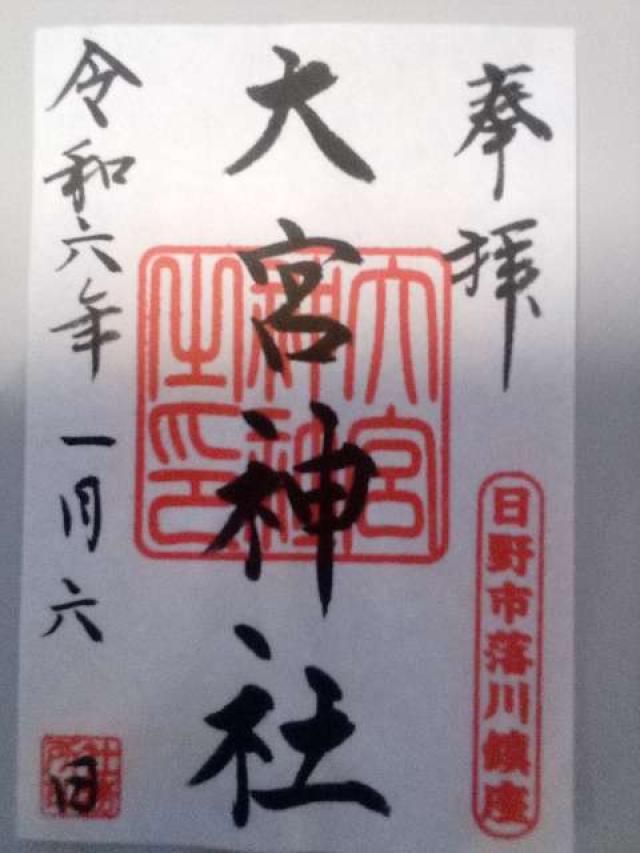 奉拝
日野市落川鎮座
大宮神社
大宮神社之印
令和六年一月六日